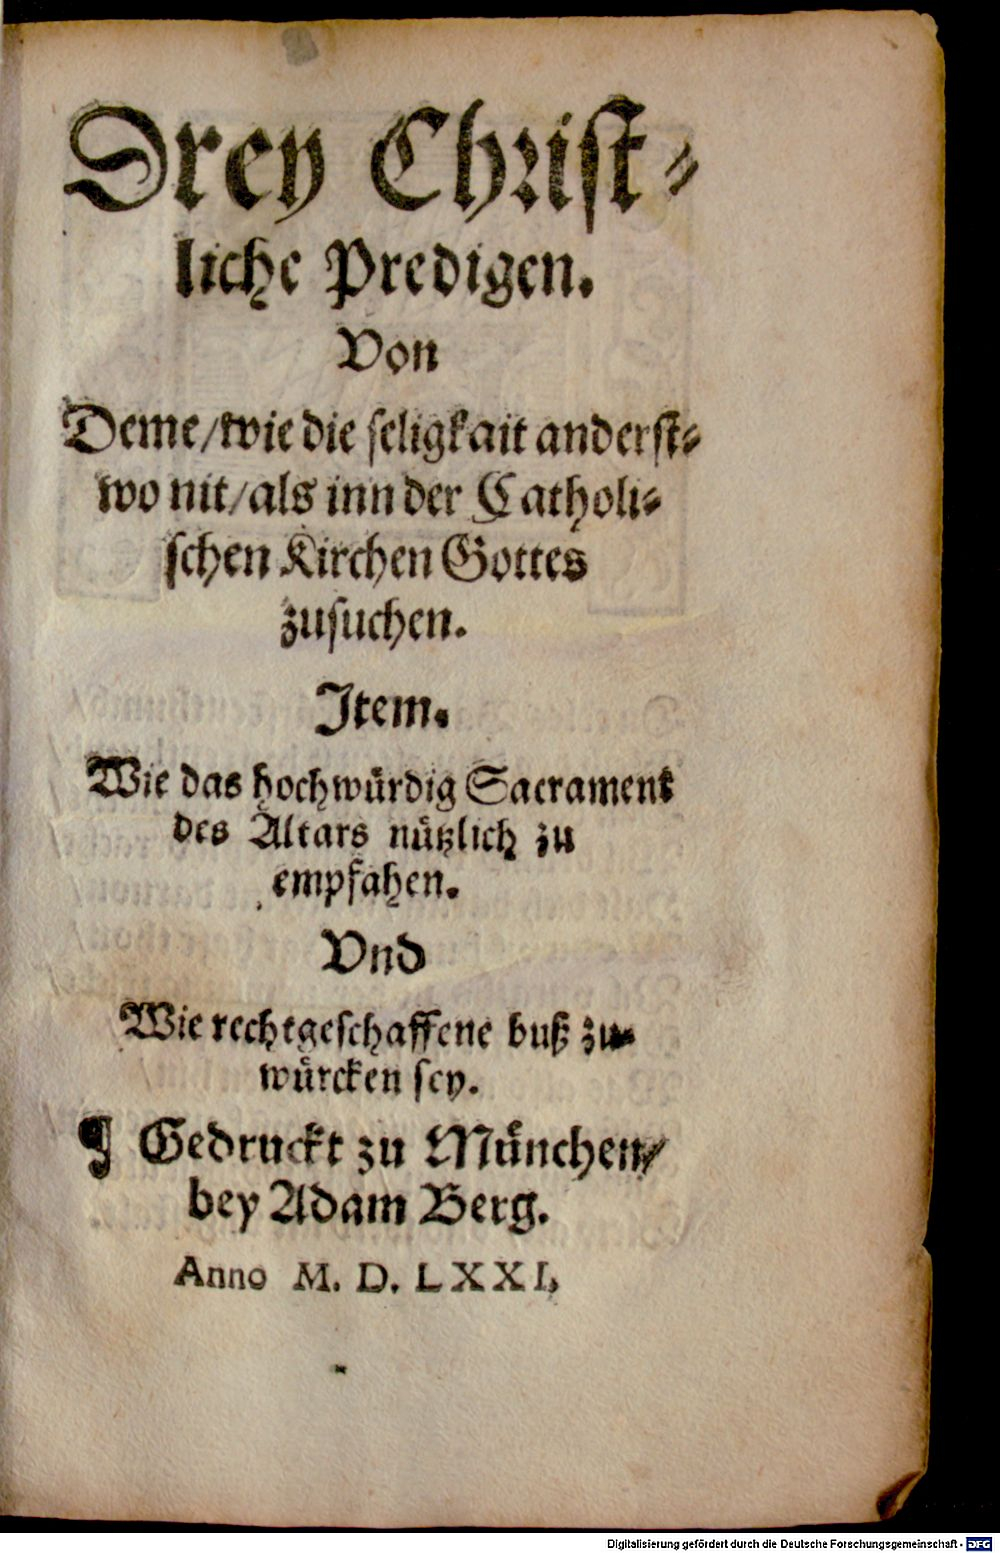 Drey Christ⸗
liche Predigen.
Von
Deme/wie die seligkait anderst⸗
wo nit/als inn der Catholi⸗
schen Kirchen Gottes
zusuchen.
Item.
Wie das hochwürdig Sacrament
des Altars nützlich zu
empfahen.
Vnd
Wie rechtgeschaffene buß zu⸗
würcken sey.
¶ Gedruckt zu München/
bey Adam Berg.
Anno M. D. LXXI.
Digitalisierung gefördert durch die Deutsche Forschungsgemeinschaft - DFG